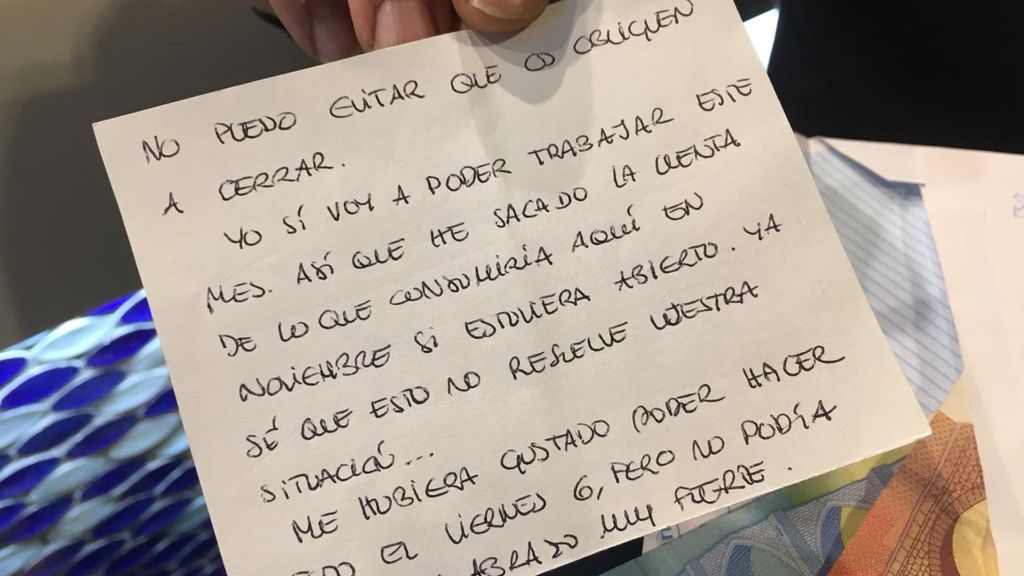 NO PUEDO EVITAR QUE OS OBLIGUEN
A CERRAR.
YO SÍ VOY A PODER TRABAJAR ESTE
MES. ASÍ QUE HE SACADO LA CUENTA
DE LO QUE CONSUMIRÍA AQUÍ EN
NOVIEMBRE SI ESTUVIERA ABIERTO. YA
SÉ QUE ESTO NO RESUELVE VUESTRA
SITUACIÓN...
ME HUBIERA GUSTADO PODER HACER
EL VIERNES 6, PERO NO PODÍA
ABRAZO MUY FUERTE.